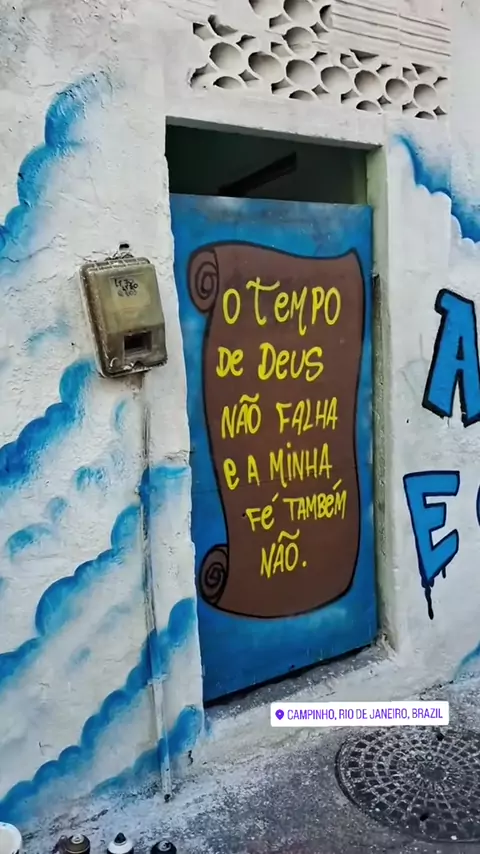 O TEMPO
DE DEUS
NÃO FALHA
E A MINHA
FÉ TAMBÉM
NÃO.
A
E
CAMPINHO, RIO DE JANEIRO, BRAZIL